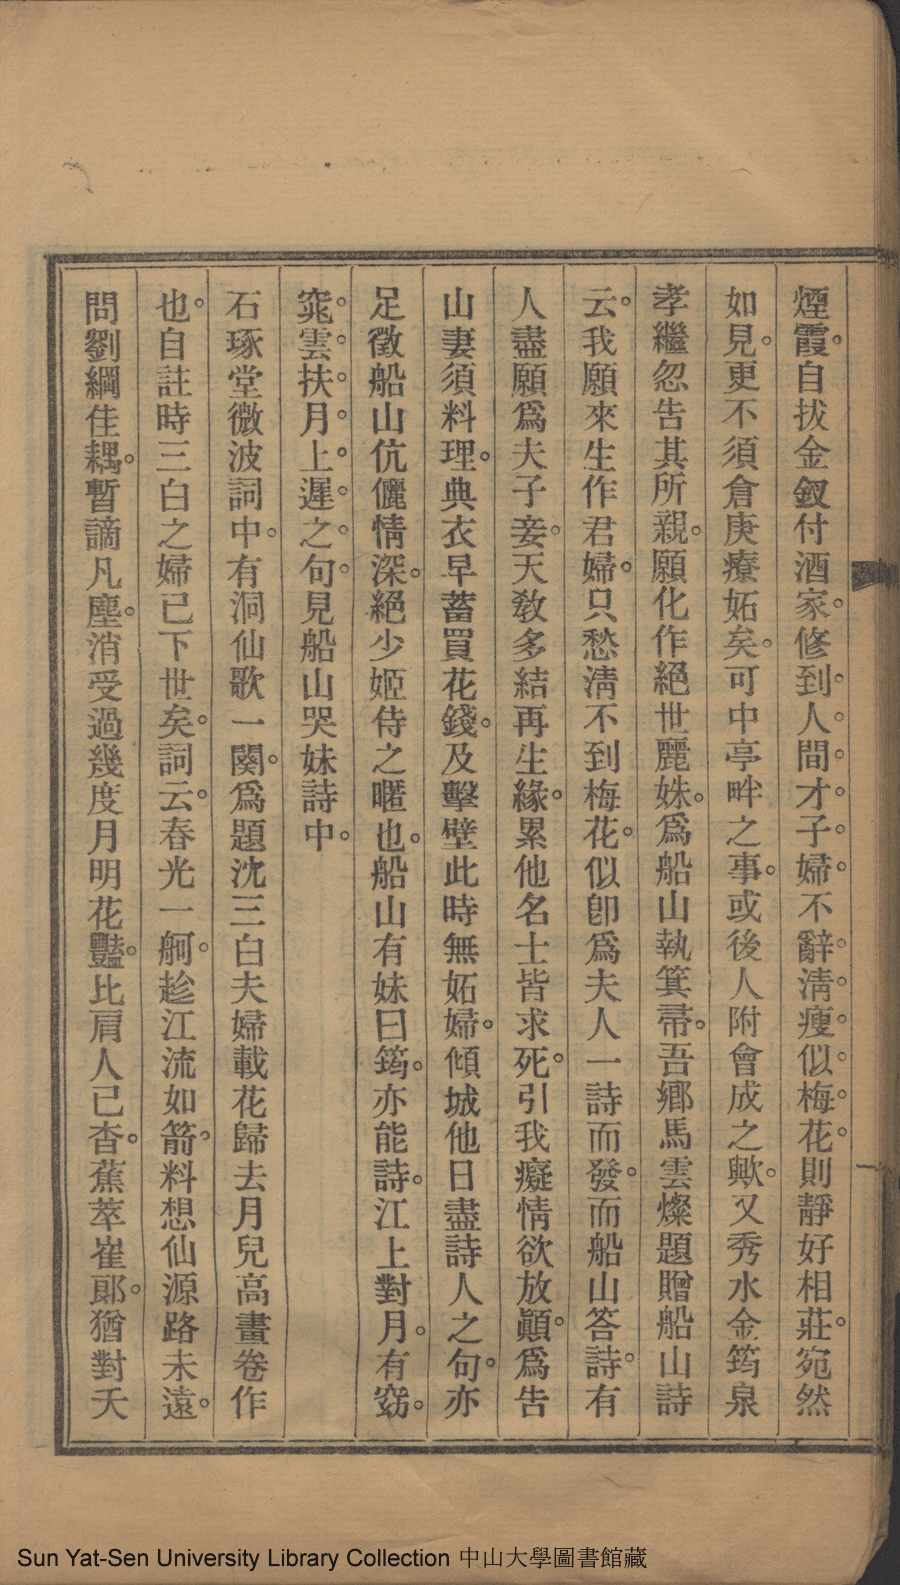 煙霞。自拔金釵付酒家。修到。人。間。才。子。婦。不辭。淸。瘦。似。梅。花。則靜好相莊。宛然
如見。更不須倉庚療妬矣。可中亭畔之事。或後人附會成之歟。又秀水金筠泉
孝繼忽告其所親。願化作絕世麗姝。爲船山執箕帚。吾鄕馬雲燦題贈船山詩
云。我願來生作君婦。只愁淸不到梅花。似卽爲夫人一詩而發。而船山答詩。有
人盡願爲夫子妾。天敎多結再生緣。累他名士皆求死。引我癡情欲放顚。爲告
山妻須料理。典衣早蓄買花錢。及擊壁此時無妬婦。傾城他日盡詩人之句。亦
足徵船山伉儷情深。絕少姬侍之暱也。船山有妹曰筠。亦能詩。江上對月。有窈。
窕。雲。扶。月。上。遲。之。句。見船山哭妹詩中。
石琢堂微波詞中。有洞仙歌一闋。爲題沈三白夫婦載花歸去月兒高畫卷作
也。自註時三白之婦已下世矣。詞云。春光一舸。趁江流如箭。料想仙源路未遠。
問劉綱佳耦。暫謫凡塵。消受過幾度月明花豔。比肩人已杳。蕉萃崔郞。猶對天
Sun Yat-Sen University Library Collection 中山大學圖書館藏